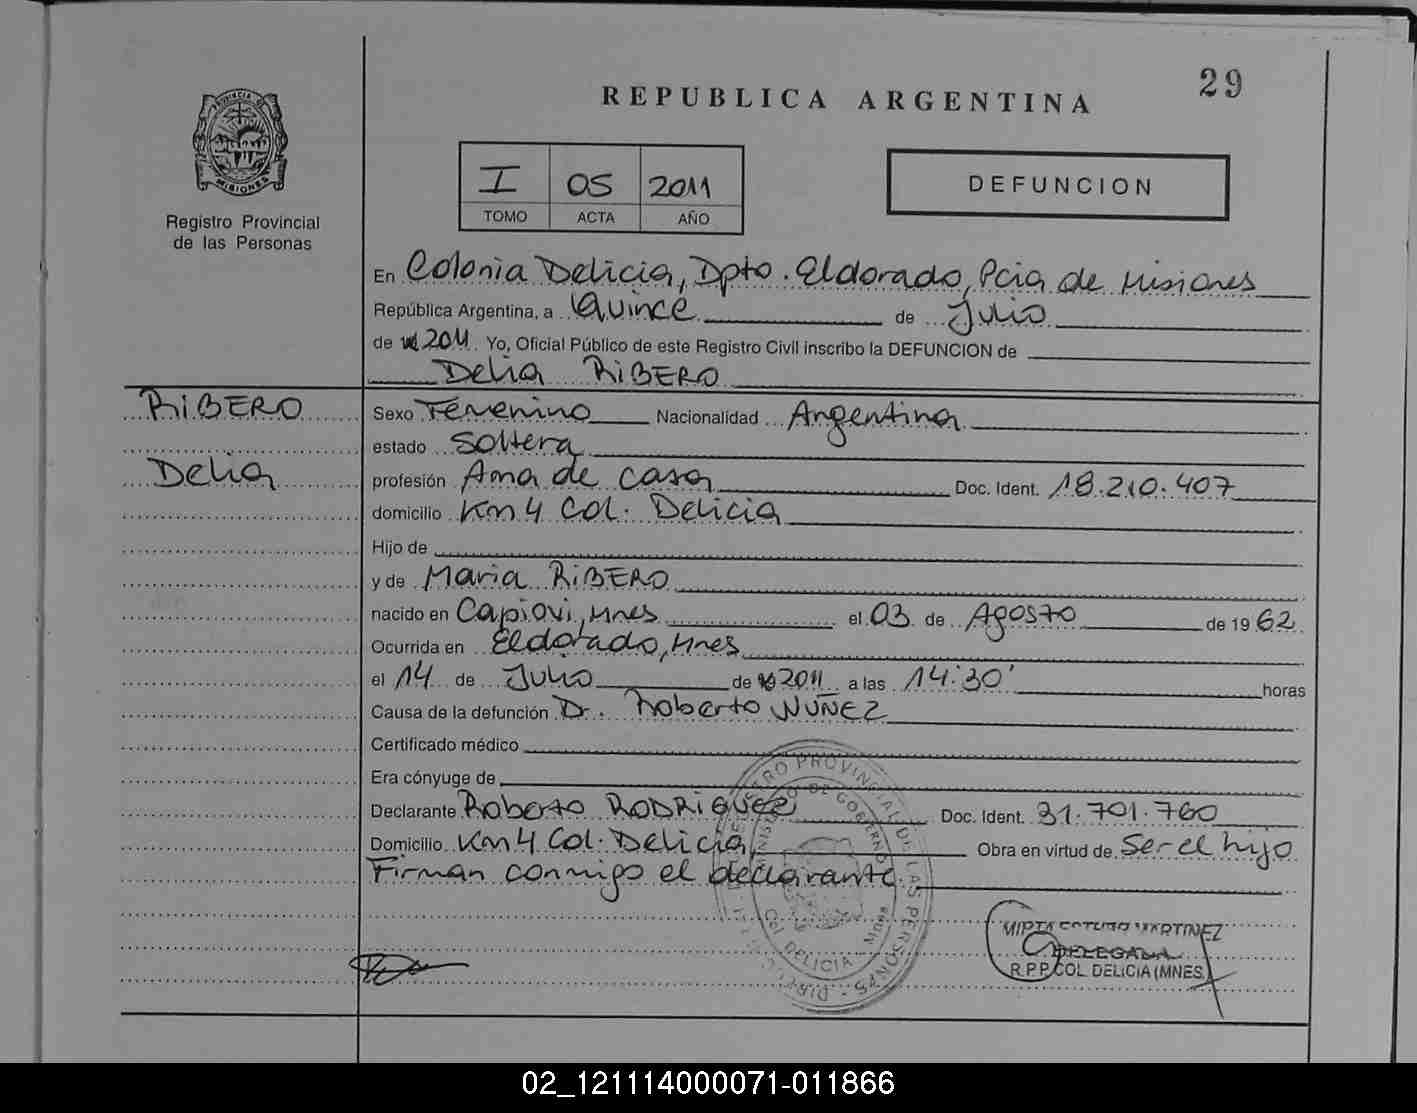 29
REPUBLICA ARGENTINA
PROVINCIA DE
MISIONES
Registro Provincial
de las Personas
I 05 2011
TOMO ACTA AÑO
DEFUNCION
En Colonia Delicia, Dpto. Eldorado, Pcia de Misiones
República Argentina, a Quince de Julio
de 2011 Yo, Oficial Público de este Registro Civil inscribo la DEFUNCION de
Delia RIBERO
RIBERO
Delia
Sexo Femenino Nacionalidad Argentina
estado Soltera
profesión Ama de casa Doc. Ident. 18.210.407
domicilio Km 4 Col. Delicia
Hijo de
y de Maria RIBERO
nacido en Capiovi, Mnes el 03 de Agosto de 1962
Ocurrida en Eldorado, Mnes
el 14 de Julio de 2011 a las 14:30' horas
Causa de la defunción Dr. Roberto NUÑEZ
Certificado médico
Era cónyuge de
Declarante Roberto RODRIGUEZ Doc. Ident. 31.701.760
Domicilio Km 4 Col. Delicia Obra en virtud de Ser el hijo
Firman conmigo el declarante
REGISTRO PROVINCIAL DE LAS PERSONAS
MINISTERIO DE GOBIERNO
Col. DELICIA - Mnes
MIRTA MARTINEZ
DELEGADA
R.P.P. COL. DELICIA (MNES)
02_121114000071-011866